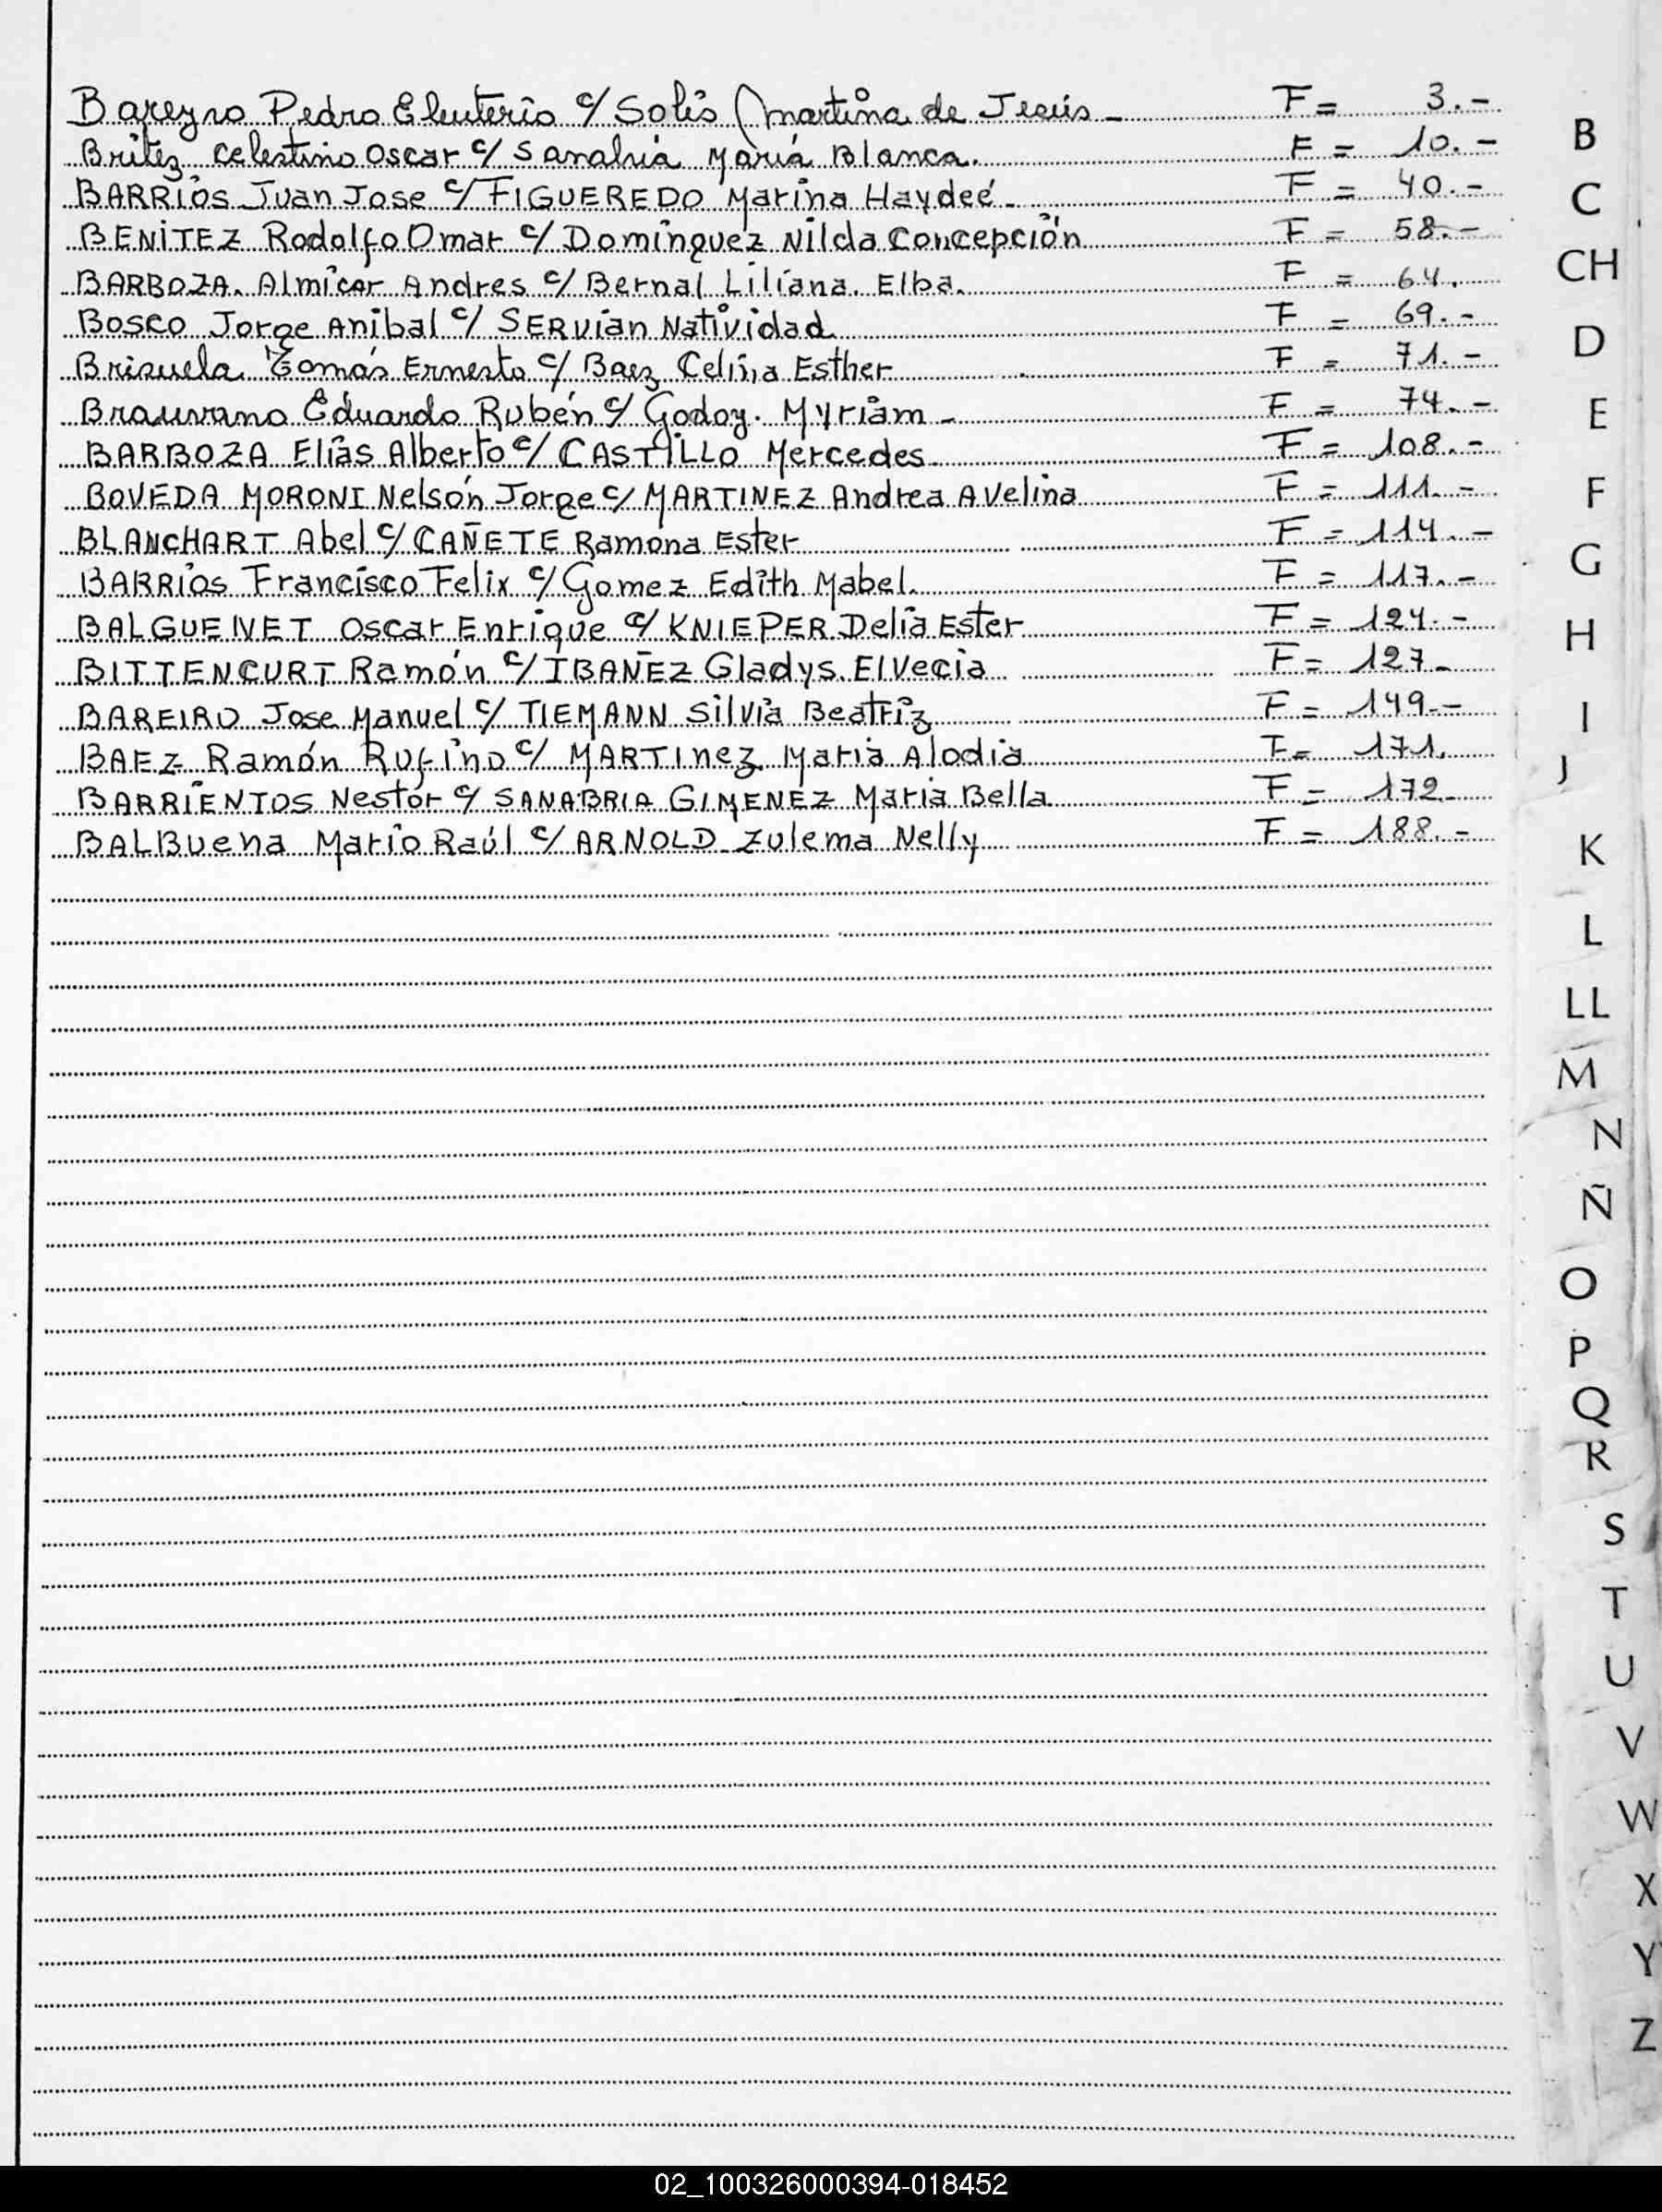 Bareyro Pedro Eleuterio c/ Solís Martina de Jesús - F = 3.-
Britez Celestino Oscar c/ Sanabria María Blanca. F = 10.-
BARRIOS Juan Jose c/ FIGUEREDO Marina Haydeé - F = 40.-
BENITEZ Rodolfo Omar c/ Dominguez Nilda Concepción F = 58.-
BARBOZA. Almicar Andres c/ Bernal Liliana. Elba. F = 64.
Bosco Jorge Anibal c/ SERVian Natividad F = 69.-
Brisuela Tomás Ernesto c/ Baez Celina Esther F = 71.-
Eduardo Rubén c/ Godoy. Myriam - F = 74.-
BARBOZA Elias Alberto c/ CASTILLO Mercedes. F = 108.-
BOVEDA MORONI Nelsón Jorge c/ MARTINEZ Andrea Avelina F = 111.-
BLANCHART Abel c/ CAÑETE Ramona Ester F = 114.-
BARRIOS Francisco Felix c/ Gomez Edith Mabel. F = 117.-
BALGUENET Oscar Enrique c/ KNIEPER Delia Ester F = 124.-
BITTENCURT Ramón c/ IBAÑEZ Gladys. Elvecia F = 127-
BAREIRO Jose Manuel c/ TIEMANN Silvia Beatriz F = 149.-
BAEZ Ramón Rufino c/ MARTINez Maria Alodia F = 171.
BARRIENTOS Nestor c/ SANABRIA GIMENEZ Maria Bella F = 172-
BALBuena Mario Raúl c/ ARNOLD Zulema Nelly F = 188.-
B
C
CH
D
E
F
G
H
I
J
K
L
LL
M
N
Ñ
O
P
Q
R
S
T
U
V
W
X
Y
Z
02_100326000394-018452